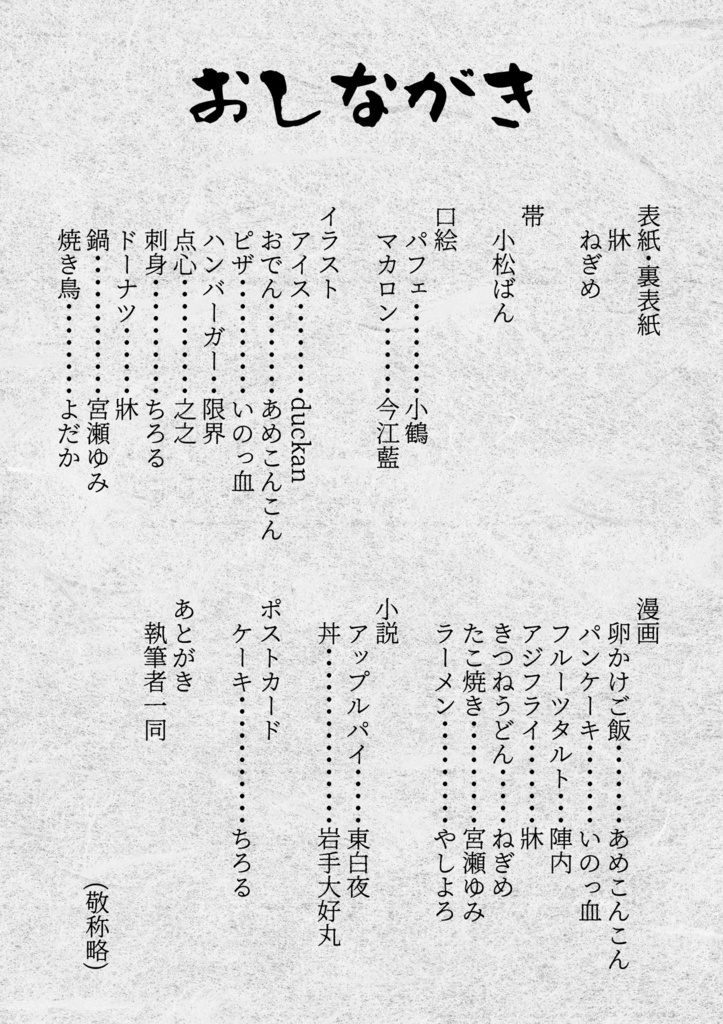 おしながき
表紙・裏表紙
牀
ねぎめ
帯
小松ばん
口絵
パフェ・・・・・・・小鶴
マカロン・・・・・今江藍
イラスト
アイス・・・・・・・duckan
おでん・・・・・・・あめこんこん
ピザ・・・・・・・・いのっ血
ハンバーガー・・限界
点心・・・・・・・・之之
刺身・・・・・・・・ちろる
ドーナツ・・・・・牀
鍋・・・・・・・・・・宮瀬ゆみ
焼き鳥・・・・・・・よだか
漫画
卵かけご飯・・・・・あめこんこん
パンケーキ・・・・・いのっ血
フルーツタルト・・陣内
アジフライ・・・・・牀
きつねうどん・・・ねぎめ
たこ焼き・・・・・・宮瀬ゆみ
ラーメン・・・・・・・やしよろ
小説
アップルパイ・・・東白夜
丼・・・・・・・・・・岩手大好丸
ポストカード
ケーキ・・・・・・・・ちろる
あとがき
執筆者一同
(敬称略)